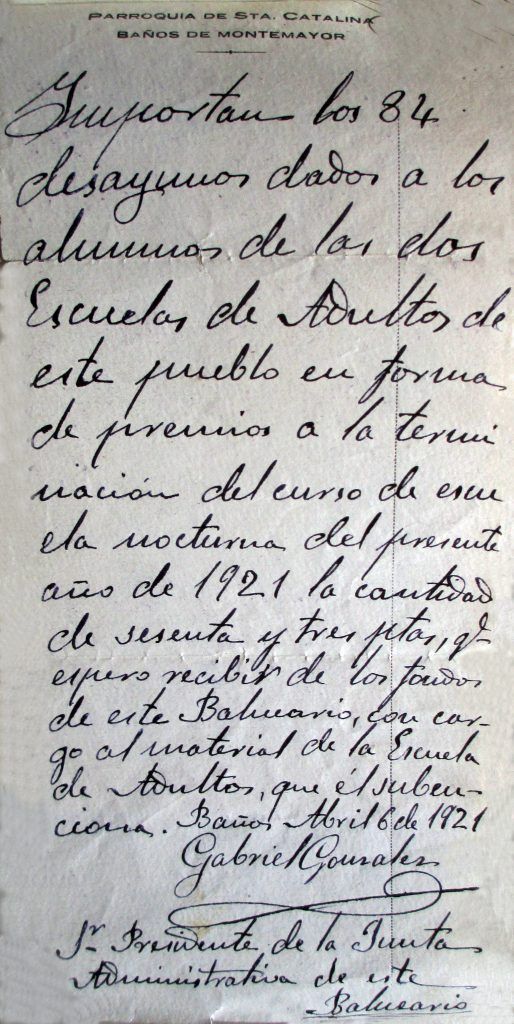 PARROQUIA DE STA. CATALINA
BAÑOS DE MONTEMAYOR
Importan los 84
desayunos dados a los
alumnos de las dos
Escuelas de Adultos de
este pueblo en forma
de premios a la termi
nación del curso de escu
ela nocturna del presente
año de 1921 la cantidad
de sesenta y tres ptas, qe
espero recibir de los fondos
de este Balneario, con car-
go al material de la Escuela
de Adultos, que él suben-
ciona. Baños Abril 6 de 1921
Gabriel Gonzalez
Sr. Presidente de la Junta
Administrativa de este
Balneario